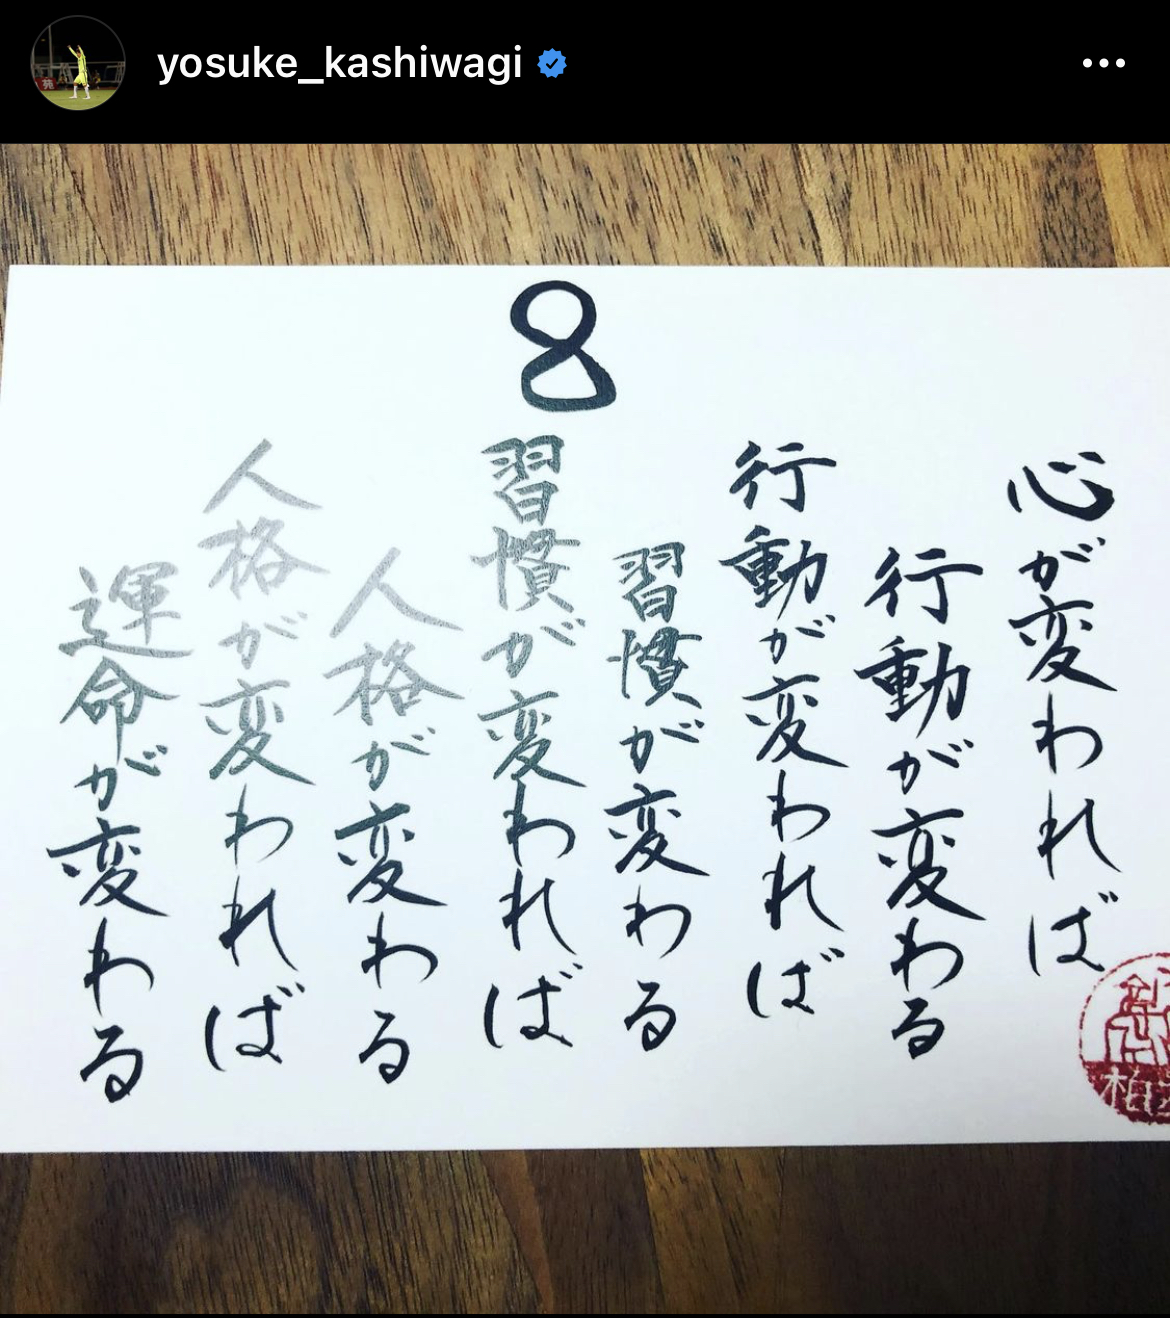 yosuke_kashiwagi
8
心が変われば
行動が変わる
行動が変われば
習慣が変わる
習慣が変われば
人格が変わる
人格が変われば
運命が変わる
柏